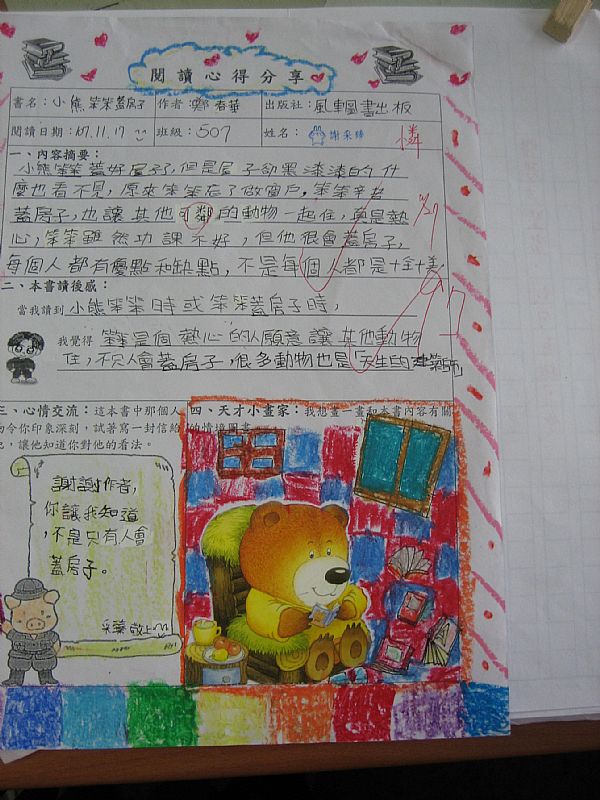 閱讀心得分享
書名：小熊笨笨蓋房子 作者：鄭春華 出版社：風車圖書出版
閱讀日期：67.11.17 班級：507 姓名：謝采臻
憐
一、內容摘要：
小熊笨笨蓋好房子了，但是屋子卻黑漆漆的什
麼也看不見，原來笨笨忘了做窗戶，笨笨辛苦
蓋房子，也讓其他可鄰的動物一起住，真是熱
心，笨笨雖然功課不好，但他很會蓋房子，
每個人都有優點和缺點，不是每個人都是十全十美
二、本書讀後感：
當我讀到小熊笨笨時或笨笨蓋房子時，
我覺得 笨笨是個熱心的人願意讓其他動物
住，不只人會蓋房子，很多動物也是「天生的建築師」
三、心情交流：這本書中那個人
令你印象深刻，試著寫一封信給
，讓他知道你對他的看法。
謝謝作者，
你讓我知道
，不是只有人會
蓋房子。
采蓁 敬上
四、天才小畫家：我想畫一畫和本書內容有關
的情境圖畫。